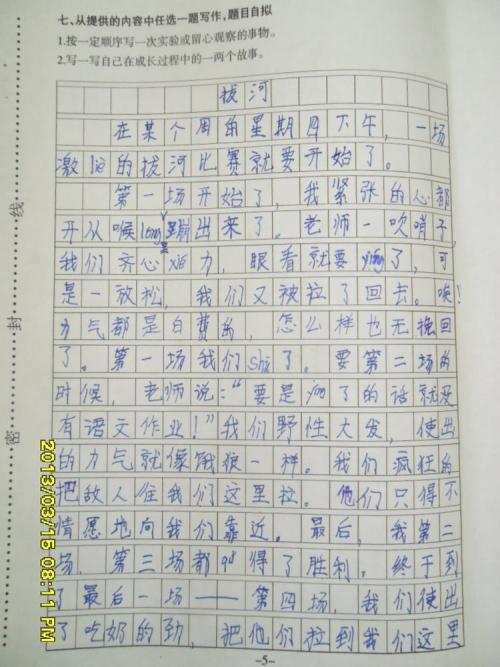 七、从提供的内容中任选一题写作,题目自拟
1.按一定顺序写一次实验或留心观察的事物。
2.写一写自己在成长过程中的一两个故事。
拔河
在某个周的星期四下午,一场
激lie的拔河比赛就要开始了。
第一场开始了,我紧张的心都
开从喉long里蹦出来了。老师一吹哨子,
我们齐心xie力,眼看就要ying了,可
是一放松,我们又被拉了回去。唉!
力气都是白费的,怎么样也无挽回
了。第一场我们shū了。要第二场的
时候,老师说:“要是ying了的话就没
有语文作业!”我们野性大发,使出
的力气就像饿狼一样。我们疯狂的
把敌人住我们这里拉。他们只得不
情愿地向我们靠近。最后,我第二
场,第三场都qǔ得了胜利。终于到
了最后一场——第四场,我们使出
了吃奶的劲,把他们拉到我们这里
-5-
线
封
密
2013/03/15 08:11 PM